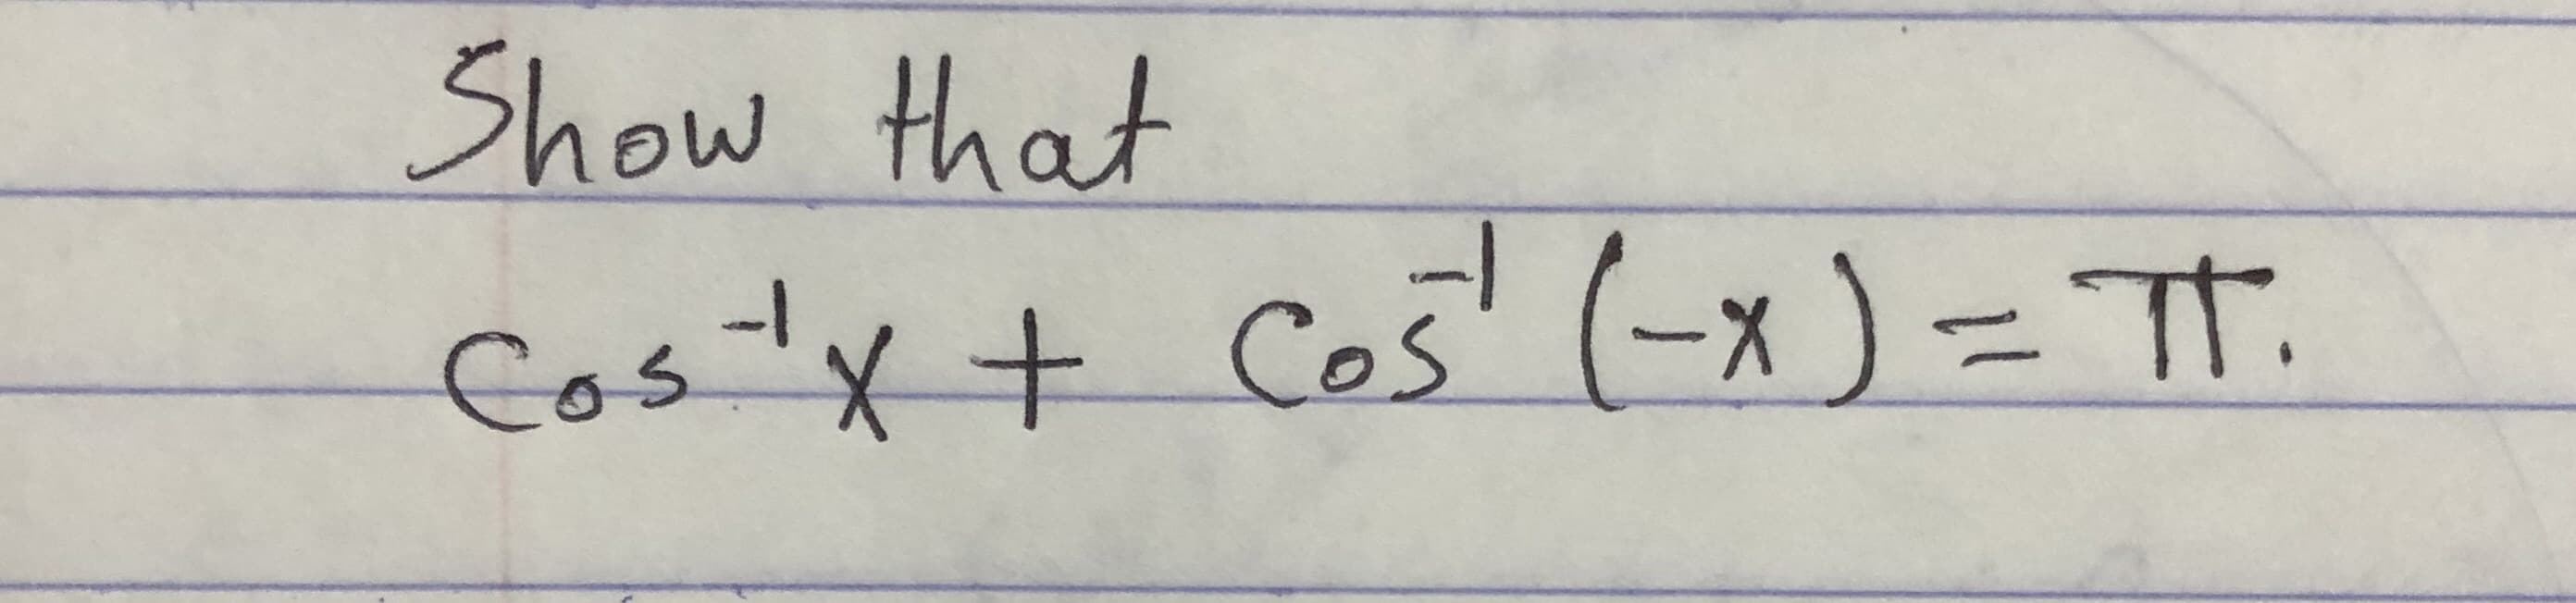 Show that
cos⁻¹x + cos⁻¹(-x) = π.